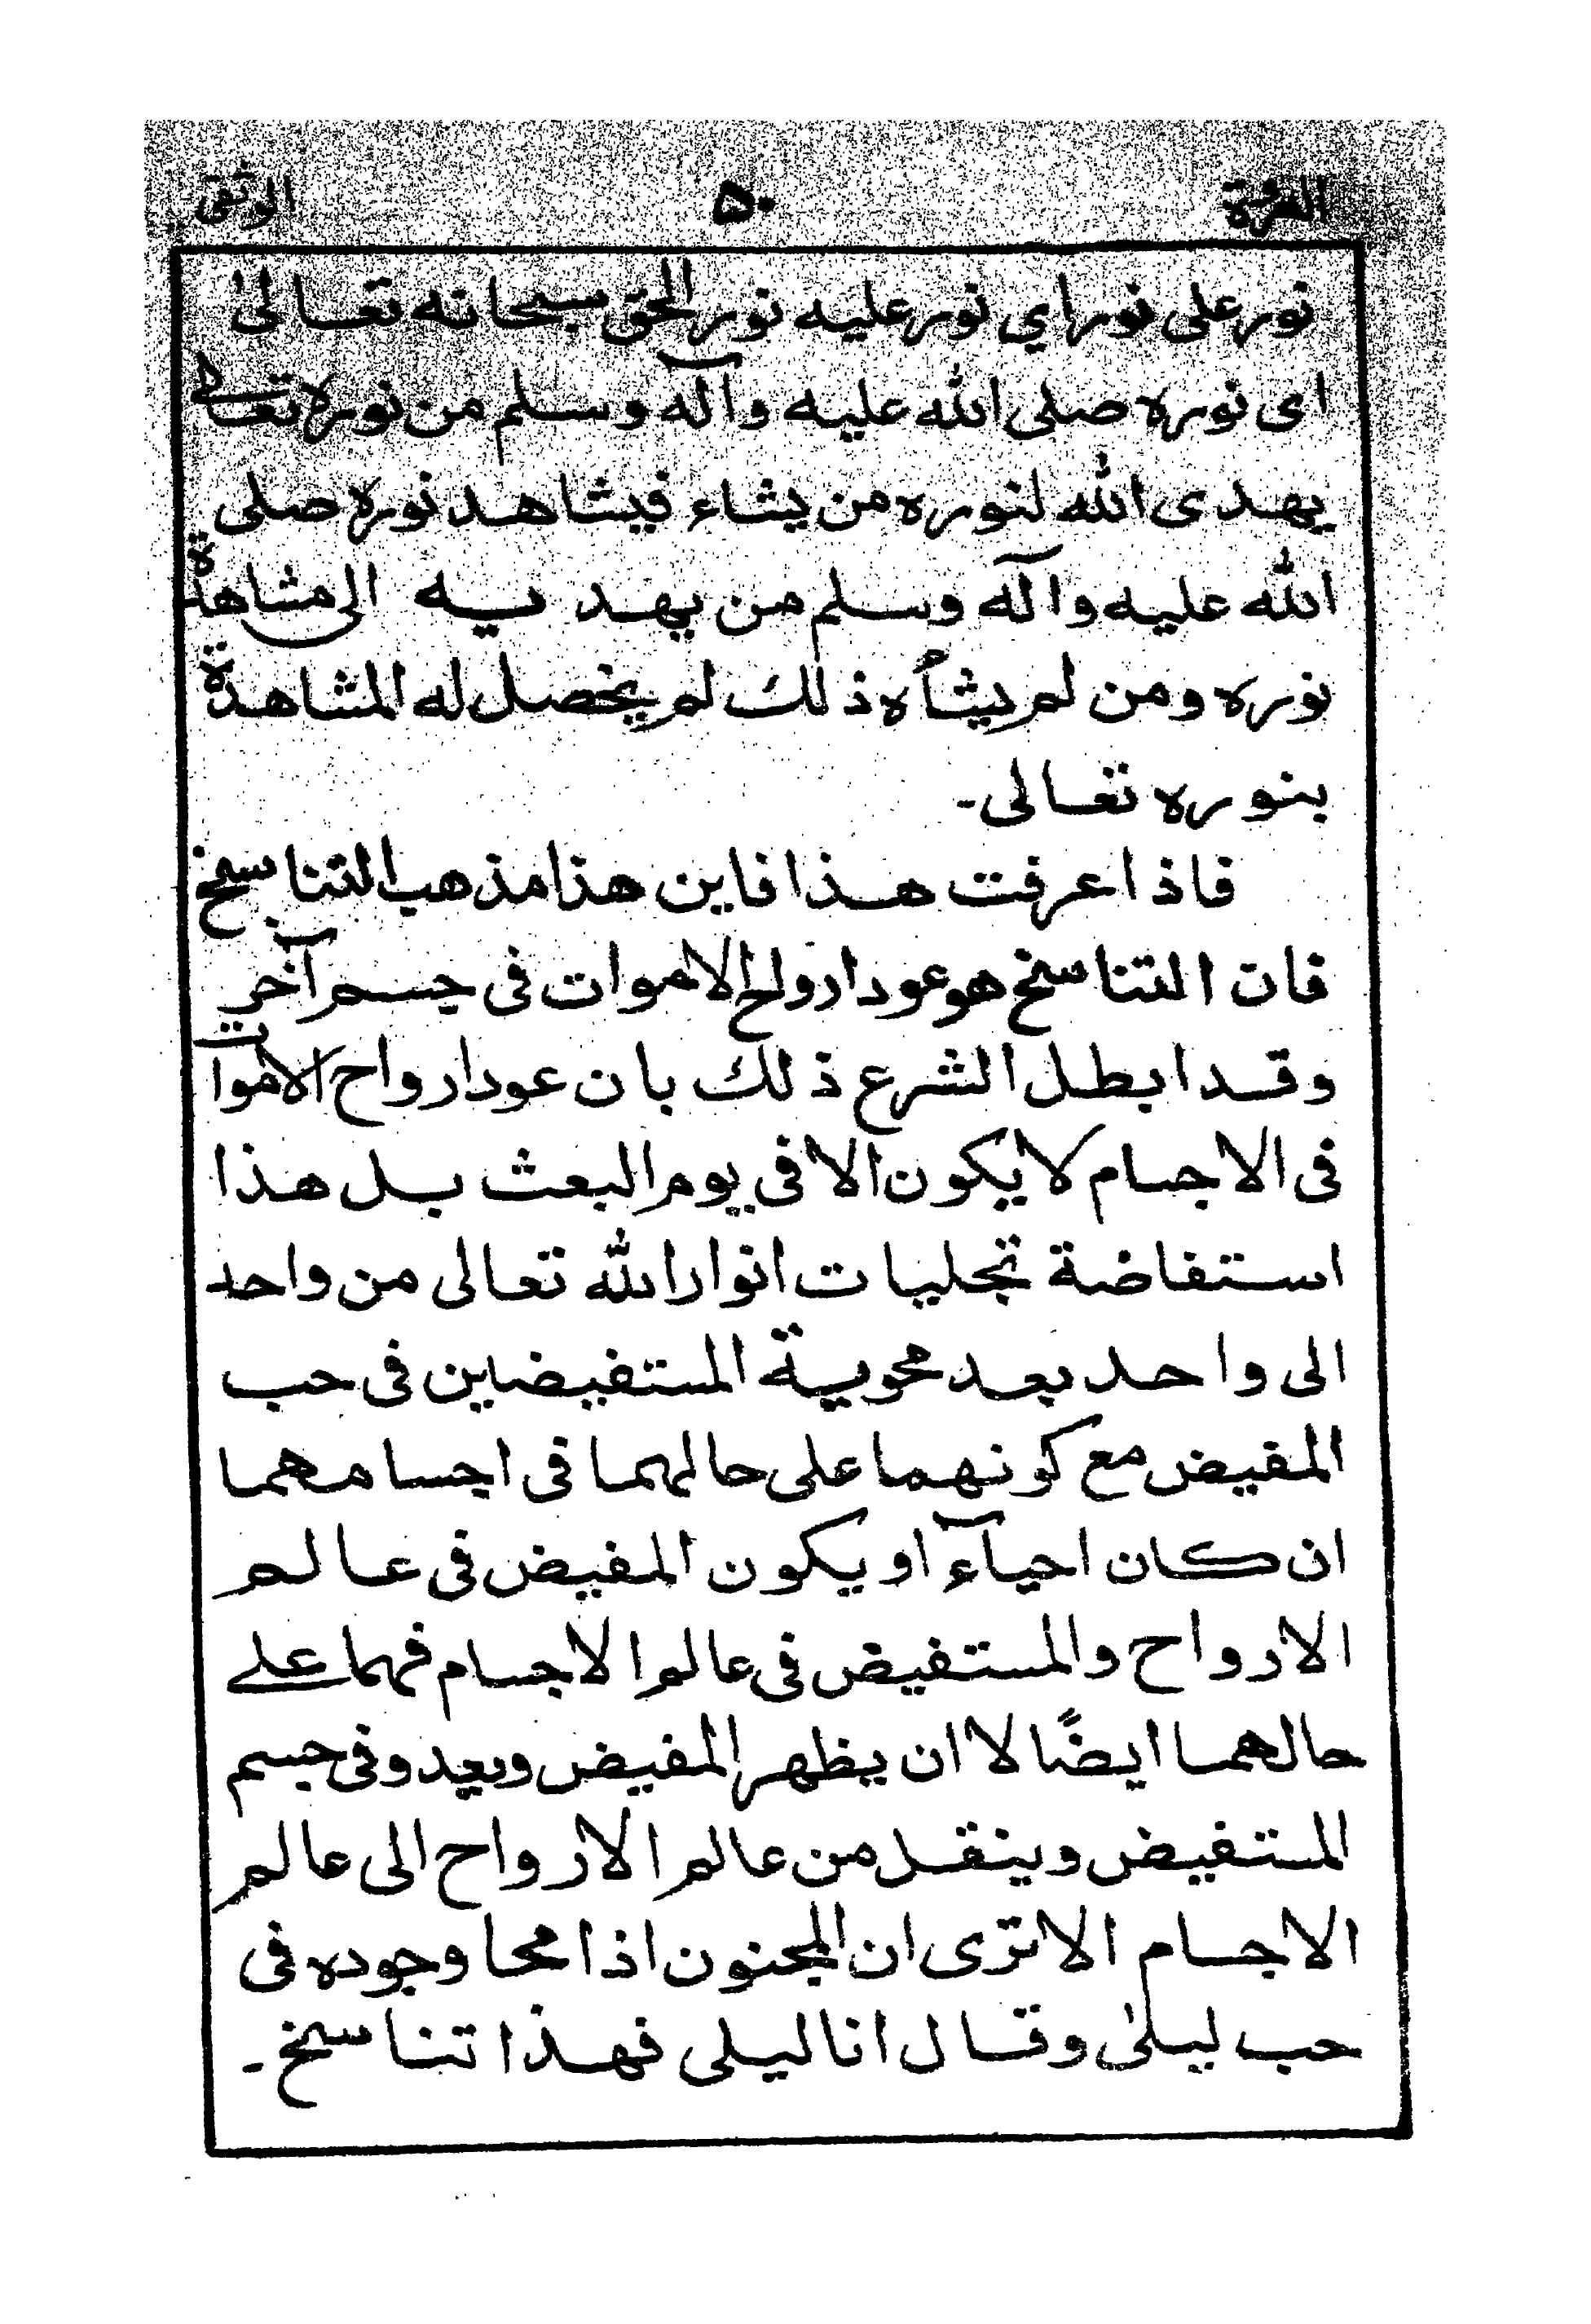 العروة ۵۰ الوثقى
نور على نور اي نور عليه نور الحق سبحانه تعالىٰ
اى نوره صلى الله عليه وآله وسلم من نوره تعالى
يهدى الله لنوره من يشاء فيشاهد نوره صلى
الله عليه وآله وسلم من يهديه الى مشاهدة
نوره ومن لم يشأه ذلك لم يحصل له المشاهدة
بنوره تعالى۔
فاذا عرفت هذا فاين هذا مذهب التناسخ
فان التناسخ هو عود ارواح الاموات فى جسم آخر
وقد ابطل الشرع ذلك بان عود ارواح الاموات
فى الاجسام لا يكون الا فى يوم البعث بل هذا
استفاضة تجليات انوار الله تعالى من واحد
الى واحد بعد محوية المستفيضين فى حب
المفيض مع كونهما على حالهما فى اجسامهما
ان كان احيآء او يكون المفيض فى عالم
الارواح والمستفيض فى عالم الاجسام فهما على
حالهما ايضًا لا ان يظهر المفيض ويعد وفى جسم
المستفيض وينقل من عالم الارواح الى عالم
الاجسام الا ترى ان المجنون اذا محا وجوده فى
حب ليلىٰ وقال انا ليلى فهذا تناسخ۔